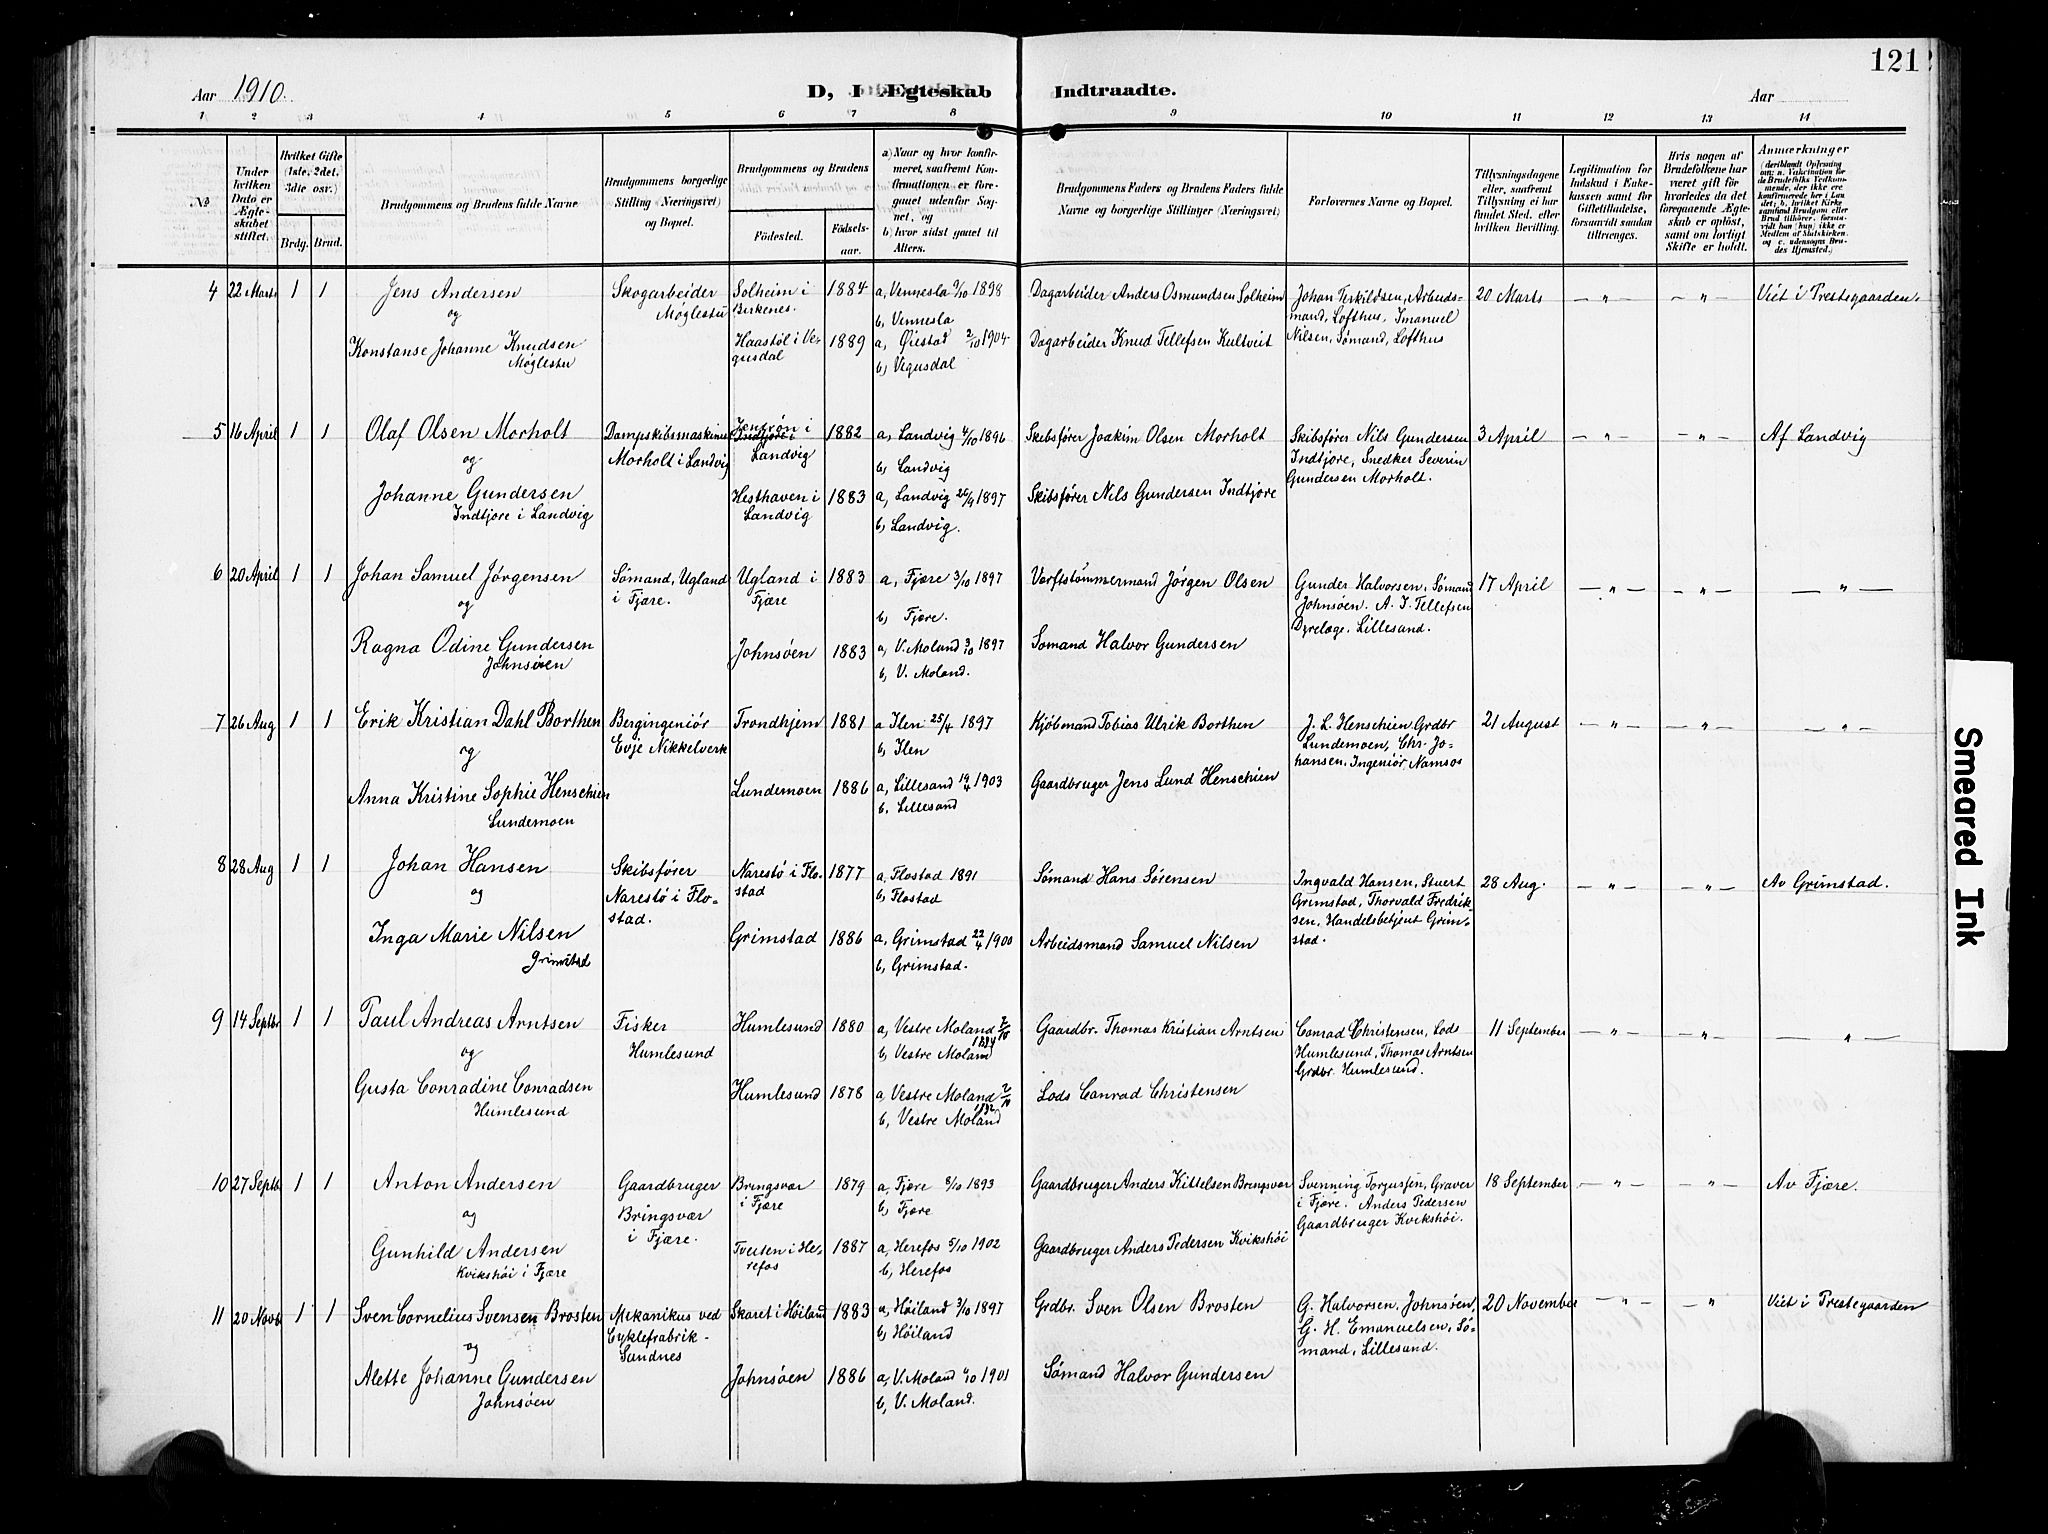 121
Aar 1910.
D, I Ægteskab Indtraadte.
Aar
1 2 3 4 5 6 7 8 9 10 11 12 13 14
№
Under hvilken Dato er Ægteskabet stiftet.
Hvilket Gifte (1ste, 2det, 3die osv.)
Brdg. Brud.
Brudgommens og Brudens fulde Navne
Brudgommens borgerlige Stilling (Næringsvei) og Bopæl.
Brudgommens og Brudens
Fødested. Fødselsaar.
a) Naar og hvor konfirmeret, saafremt Konfirmationen er foregaaet udenfor Sognet, og
b) hvor sidst gaaet til Alters.
Brudgommens Faders og Brudens Faders fulde Navne og borgerlige Stillinger (Næringsvei)
Forlovernes Navne og Bopæl.
Tillysningsdagene eller, saafremt Tillysning ei har fundet Sted, efter hvilken Bevilling.
Legitimation for Indskud i Enkekassen samt for Giftetilladelse, forsaavidt saadan tiltrænges.
Hvis nogen af Brudefolkene har været gift før hvorledes da det foregaaende Ægteskab er opløst, samt om lovligt Skifte er holdt.
Anmærkninger
(deriblandt Oplysning om: a. Vakcination for de Brudefolks Vedkommende, der ikke ere konfirmerede her i Landet; b. hvilket Kirkesamfund Brudgom eller Brud tilhører, forsaavidt han (hun) ikke er Medlem af Statskirken og c. udensogns Brudes Hjemsted.)
4 22 Marts 1 1 Jens Andersen Skogarbeider Solheim i 1884 a, Vennesla 2/10 1898 Dagarbeider Anders Osmundsen Solheim Johan Terkildsen, Arbeids- 20 Marts – " – – " – Viet i Prestegaarden.
og Møglestu Birkenes. b, Vennesla mand, Lofthus, Imanuel
Konstanse Johanne Knudsen Haastøl i Ve- 1889 a, Øiestad 2/10 1904 Dagarbeider Knud Tellefsen Kultveit Nilsen, Sømand, Lofthus
Møglestu gusdal b, Vegusdal
5 16 April 1 1 Olaf Olsen Morholt Dampskibsmaskinist Indtjøre i 1882 a, Landvig 4/10 1896 Skibsfører Joakim Olsen Morholt Skibsfører Nils Gundersen 3 April – " – – " – Af Landvig
og Morholt i Landvig Landvig b, Landvig Indtjøre, Snedker Severin
Johanne Gundersen Hesthaven i 1883 a, Landvig 25/4 1897 Skibsfører Nils Gundersen Indtjøre Gundersen Morholt.
Indtjøre i Landvig Landvig b, Landvig.
6 20 April 1 1 Johan Samuel Jørgensen Sømand, Ugland Ugland i 1883 a, Fjære 3/10 1897 Værftstømmermand Jørgen Olsen Gunder Halvorsen, Sømand 17 April – " – – " – – " –
og i Fjære. Fjære b, Fjære. Johnsøen. A. J. Tellefsen
Ragna Odine Gundersen Johnsøen 1883 a, V. Moland 3/10 1897 Sømand Halvor Gundersen Dyrelæge, Lillesand.
Johnsøen b, V. Moland.
7 26 Aug 1 1 Erik Kristian Dahl Borthen Bergingeniør Trondhjem 1881 a Ilen 25/4 1897 Kjøbmand Tobias Ulrik Borthen J. L. Henschien Grdbr 21 August – " – – " – – " –
og Evje Nikkelverk b, Ilen Lundemoen, Chr. Jo-
Anna Kristine Sophie Henschien Lundemoen 1886 a, Lillesand 19/4 1903 Gaardbruger Jens Lund Henschien hansen, Ingeniør, Namsos
Lundemoen b. Lillesand
8 28 Aug 1 1 Johan Hansen Skibsfører Narestø i Flo- 1877 a, Flostad 1891 Sømand Hans Sørensen Ingvald Hansen, Stuert 28 Aug. – " – – " – Av Grimstad.
og Narestø i Flo- stad b, Flostad Grimstad, Thorvald Fredrik-
Inga Marie Nilsen stad. Grimstad 1886 a, Grimstad 22/4 1900 Arbeidsmand Samuel Nilsen sen, Handelsbetjent Grim-
Grimstad b, Grimstad. stad.
9 14 Septbr 1 1 Paul Andreas Arntsen Fisker Humlesund 1880 a, Vestre Moland 1894 Gaardbr. Thomas Kristian Arntsen Conrad Christensen, Lods 11 September – " – – " – – " –
og Humlesund b, Vestre Moland Humlesund, Thomas Arntsen
Gusta Conradine Conradsen Humlesund 1878 a, Vestre Moland 2/10 1892 Lods Conrad Christensen Grdbr. Humlesund.
Humlesund b, Vestre Moland
10 27 Septb 1 1 Anton Andersen Gaardbruger Bringsvær 1879 a, Fjære 8/10 1893 Gaardbruger Anders Kittelsen Bringsvær Svenning Torjussen, Graver 18 September – " – – " – Av Fjære.
og Bringsvær i Fjære b, Fjære i Fjære. Anders Pedersen
Gunhild Andersen i Fjære. Tveiten i He- 1887 a, Herefos 5/10 1902 Gaardbruger Anders Pedersen Kvikshøi Gaardbruger Kvikshøi.
Kvikshøi i Fjære refos b, Herefos
11 20 Novb 1 1 Sven Cornelius Svensen Brosten Mekanikus ved Skaret i Høiland 1883 a, Høiland 3/10 1897 Grdbr. Sven Olsen Brosten G. Halvorsen, Johnsøen, 20 November – " – – " – Viet i Prestegaarden
og Cyklefabrik- b, Høiland G. H. Emanuelsen, Sø-
Alette Johanne Gundersen Sandnes Johnsøen 1886 a, V. Moland 6/10 1901 Sømand Halvor Gundersen mand, Lillesand.
Johnsøen b, V. Moland.
Smeared Ink